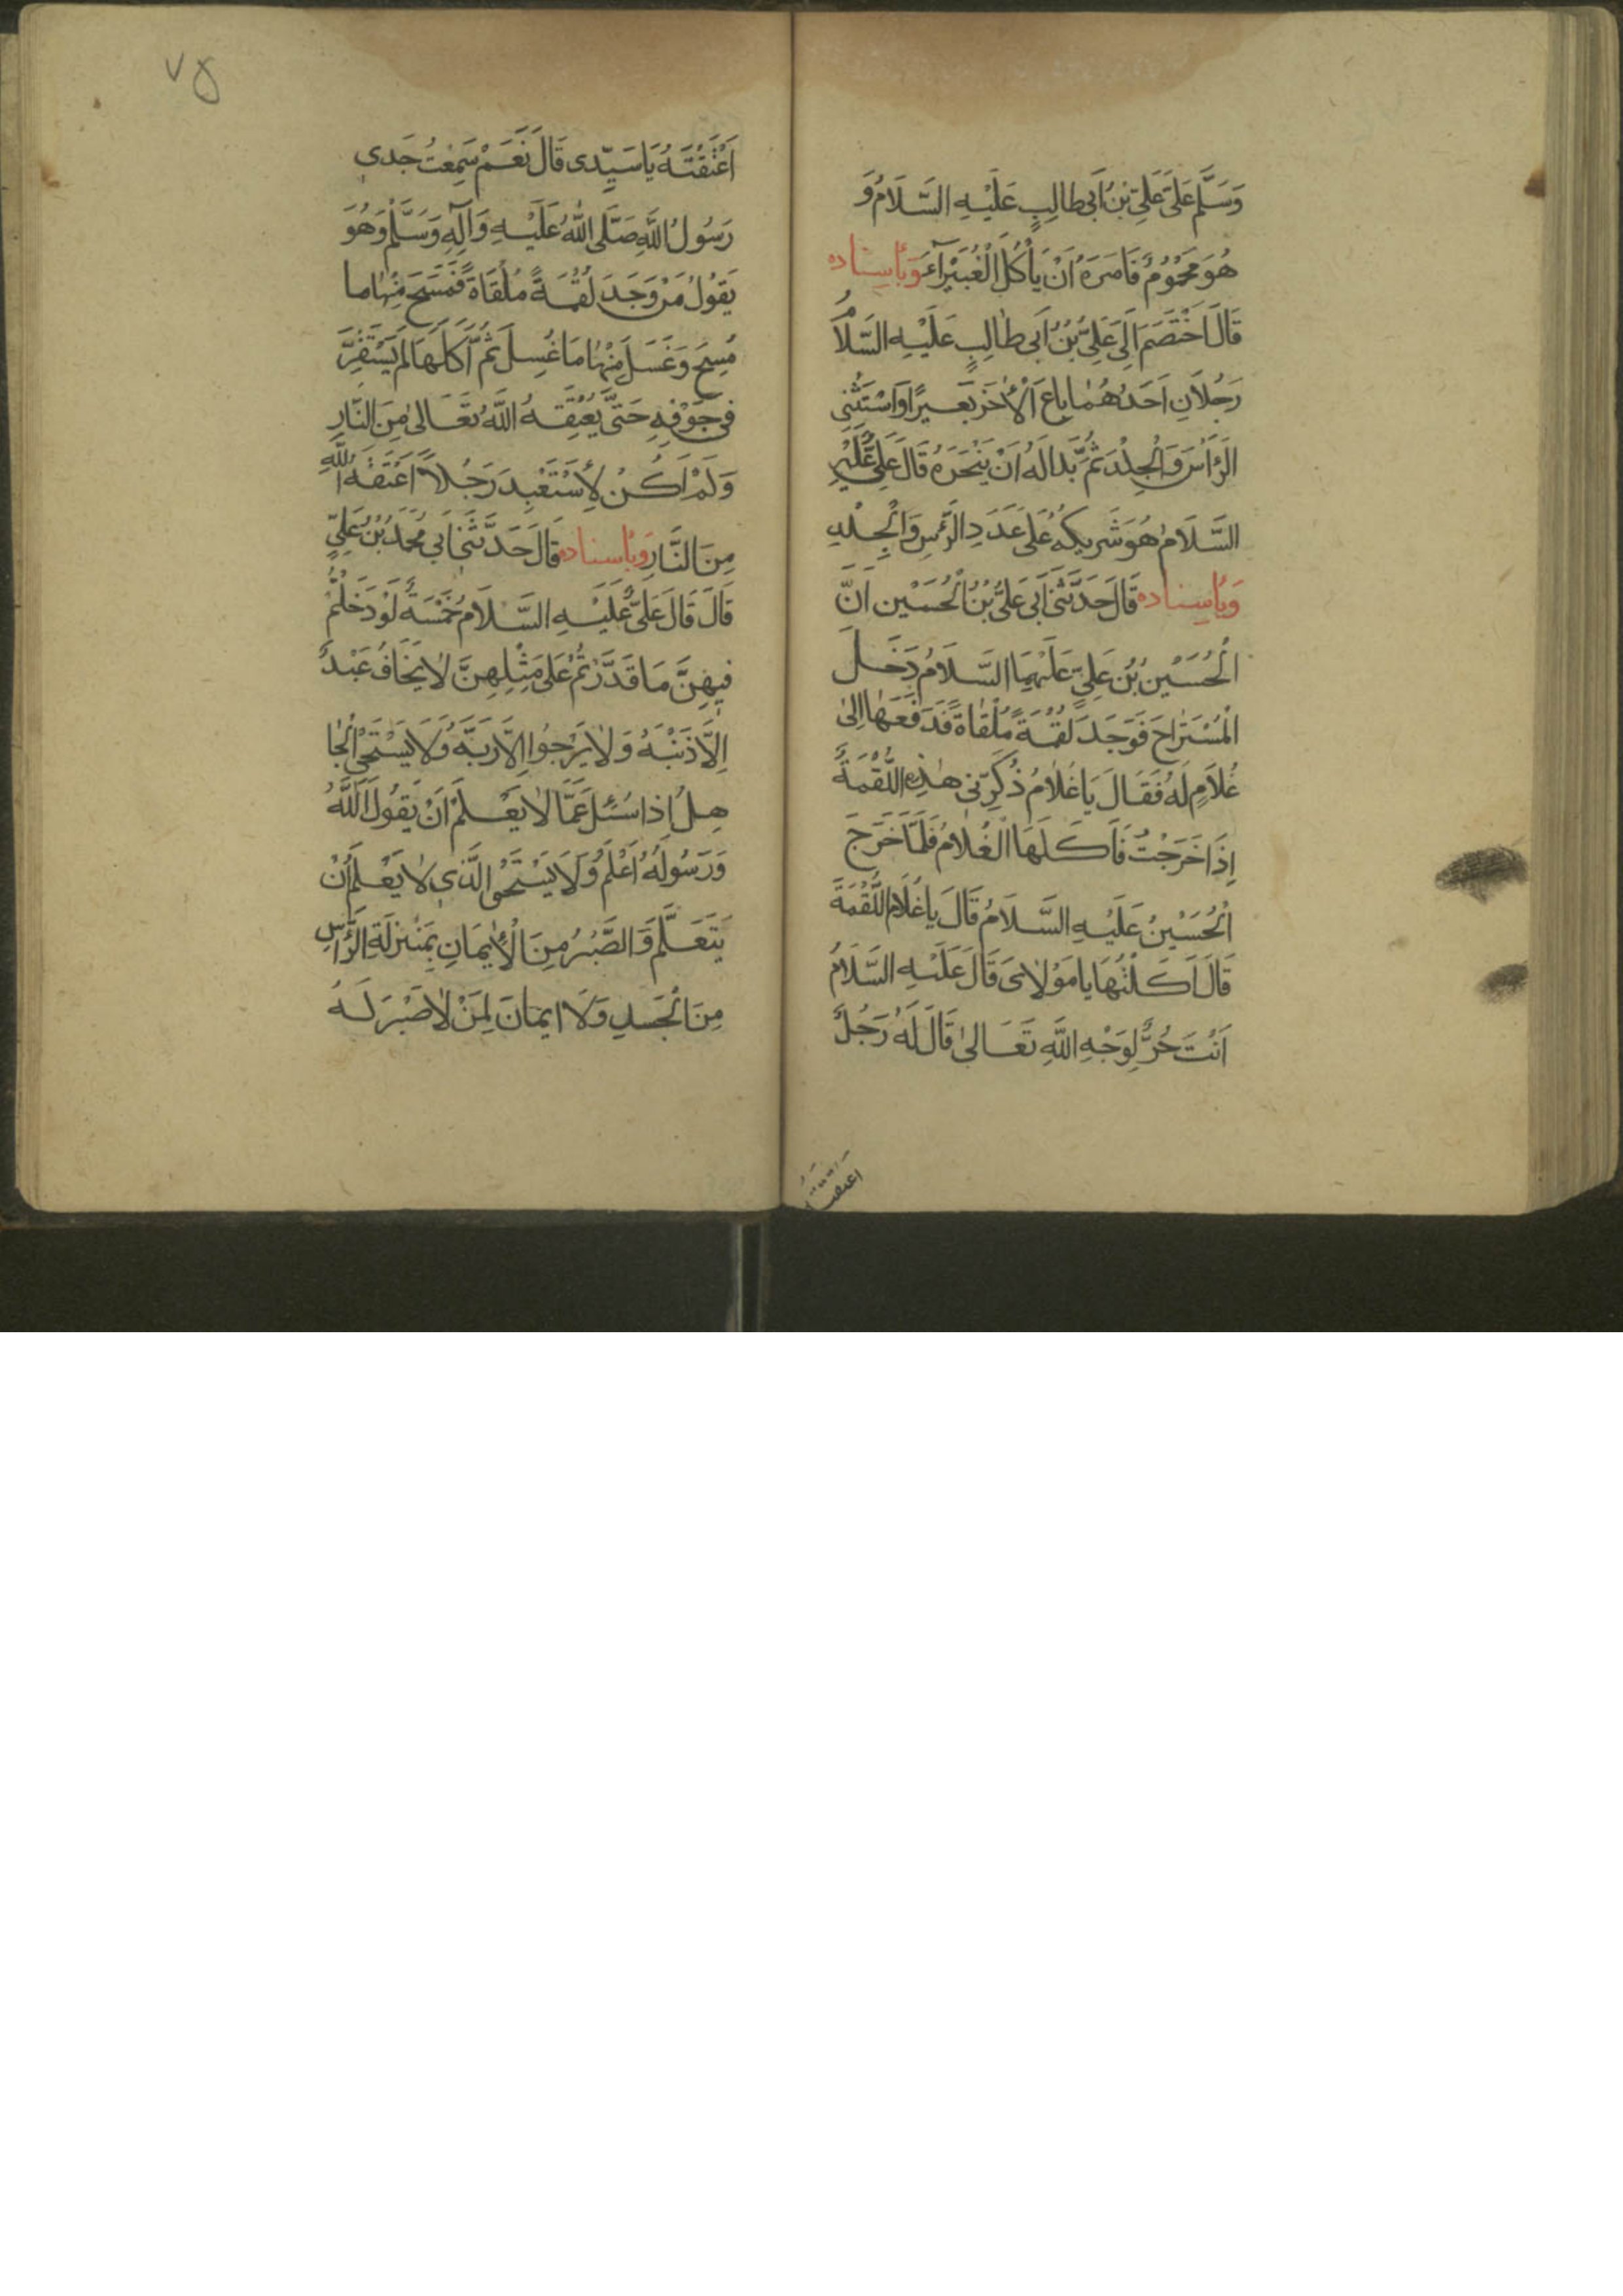 وَسَلَّمَ عَلَىٰ عَلِيِّ بْنِ اَبِى طالِبٍ عَلَيْهِ السَّلَامُ وَ
هُوَ مَحْمُومٌ فَاَمَرَهُ اَنْ يَأْكُلَ الْغُبَيْرَآءَ وَبِأسِنادِه
قَالَ اخْتَصَمَ اِلَى عَلِيِّ بْنِ اَبى طالِبٍ عَلَيْهِ السَّلَامُ
رَجُلَانِ اَحَدُهُمَا باعَ الْأخَرَ بَعِيرًا وَاسْتَثْنى
الرَّأْسَ وَالْجِلْدَ ثُمَّ بَدا لَهُ اَنْ يَنْحَرَهُ قَالَ عَلِىٌّ عَلَيْهِ
السَّلَامُ هُوَ شَرِيكُهُ عَلَى عَدَدِ الرَّأْسِ وَالْجِلْدِ
وَبِأسِنادِه قَالَ حَدَّثَنى اَبى عَلِىُّ بْنُ الْحُسَيْنِ اَنَّ
الْحُسَيْنَ بْنَ عَلِيٍّ عَلَيْهِمَا السَّلَامُ دَخَلَ
الْمُسْتَرَاحَ فَوَجَدَ لُقْمَةً مُلْقَاةً فَدَفَعَهَا اِلىٰ
غُلَامٍ لَهُ فَقَالَ يَا غُلَامُ ذَكِّرْنى هٰذِهِ اللُّقْمَةَ
اِذَا خَرَجْتُ فَاَكَلَهَا الْغُلَامُ فَلَمَّا خَرَجَ
الْحُسَيْنُ عَلَيْهِ السَّلَامُ قَالَ يا غُلَامُ اللُّقْمَةَ
قَالَ اَكَلْتُهَا يا مَوْلَاىَ قَالَ عَلَيْهِ السَّلَامُ
اَنْتَ حُرٌّ لِوَجْهِ اللَّهِ تَعَالىٰ قَالَ لَهُ رَجُلٌ
اعتقته
٧٥
اَعْتَقْتَهُ يَا سَيِّدِى قَالَ نَعَمْ سَمِعْتُ جَدِى
رَسُولَ اللَّهِ صَلَّى اللَّهُ عَلَيْهِ وَآلِهِ وَسَلَّمَ وَهُوَ
يَقُولُ مَنْ وَجَدَ لُقْمَةً مُلْقَاةً فَمَسَحَ مِنْهَا ما
مُسِحَ وَغَسَلَ مِنْهَا مَا غُسِلَ ثُمَّ اَكَلَهَا لَمْ يَسْتَقِرَّ
فى جَوْفِهِ حَتَّى يُعْتِقَهُ اللَّهُ تَعَالىٰ مِنَ النَّارِ
وَلَمْ اَكُنْ لِأَسْتَعْبِدَ رَجُلاً اَعْتَقَهُ اللَّه
مِنَ النَّارِ وَبِأسِنادِه قَالَ حَدَّثَنِى اَبِي مُحَمَّدُ بْنُ عَلِيٍّ
قَالَ قَالَ عَلِىٌّ عَلَيْهِ السَّلَامُ خَمْسَةٌ لَوْ دَخَلْتُمْ
فِيهِنَّ مَا قَدَّرْتُمْ عَلى مِثْلِهِنَّ لَا يَخَافُ عَبْدٌ
اِلَّا ذَنْبَهُ وَلَا يَرْجُوا اِلَّا رَبَّهُ وَلَا يَسْتَحْيِ الْجَا
هِلُ اِذا سُئِلَ عَمَّا لَا يَعْلَمُ اَنْ يَقُولَ اَللَّهُ
وَرَسُولُهُ اَعْلَمُ وَلَا يَسْتَحْيِ الَّذى لَا يَعْلَمُ اَنْ
يَتَعَلَّمَ وَالصَّبْرُ مِنَ الْأيمَانِ بِمَنْزِلَةِ الرَّأسِ
مِنَ الْجَسَدِ وَلَا ايمانَ لِمَنْ لَا صَبْرَ لَهُ